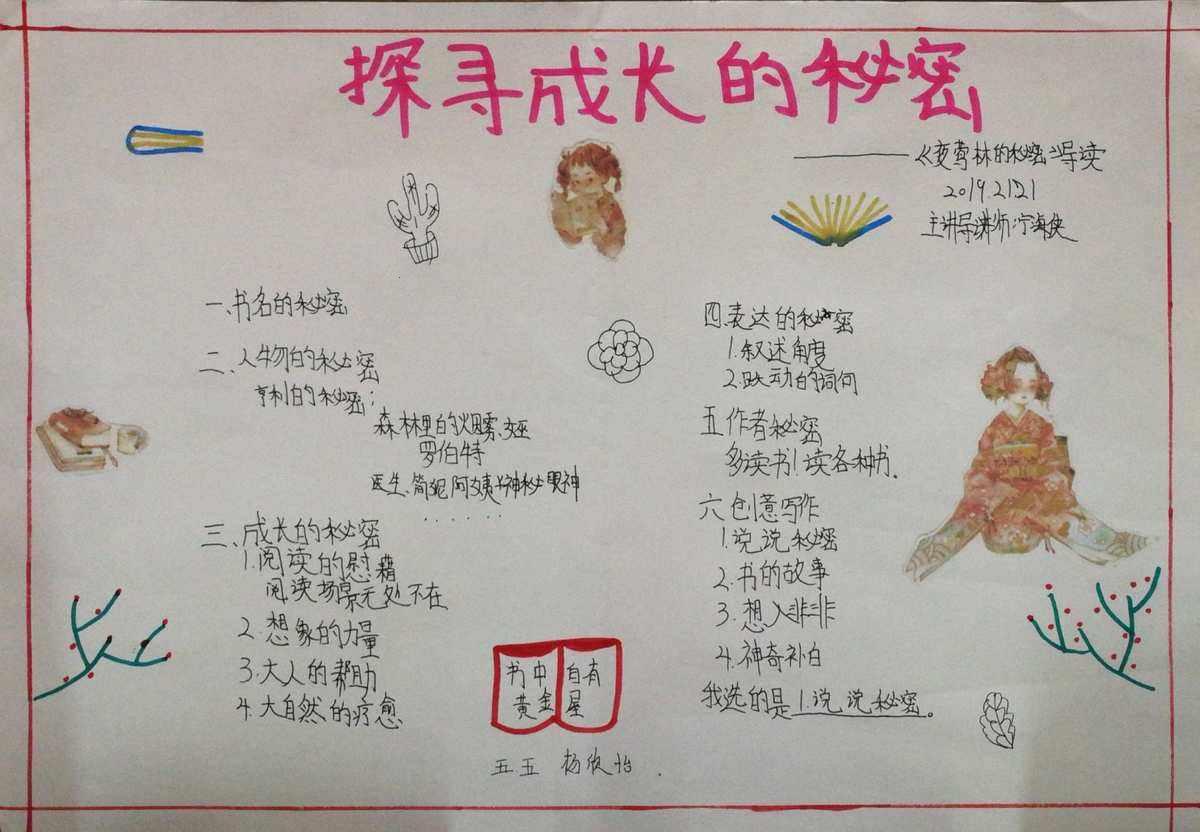 探寻成长的秘密
——《夜莺林的秘密》导读
2019.2.21
主讲导讲师:宁海侠
一.书名的秘密
二、人物的秘密
亨利的秘密:
森林里的烟雾、女巫
罗伯特
医生、简妮阿姨、神秘眼神
......
三、成长的秘密
1.阅读的慰藉
阅读场景无处不在
2.想象的力量
3.大人的帮助
4.大自然的疗愈
四.表达的秘密
1.叙述角度
2.跃动的词句
五作者秘密
多读书!读各种书.
六创意写作
1.说说秘密
2.书的故事
3.想入非非
4.神奇补白
我选的是1.说说秘密。
书中自有
黄金屋
五五 杨欣怡.